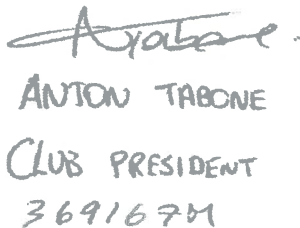 ATabone
ANTON TABONE
CLUB PRESIDENT
369167M